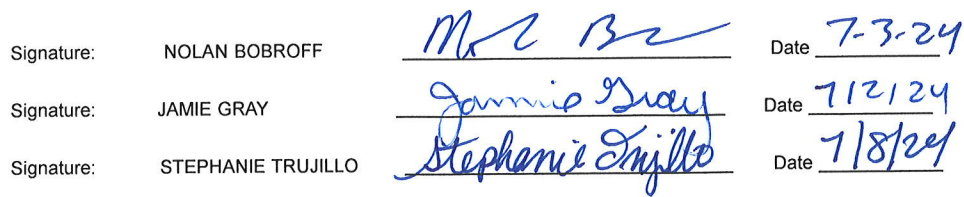 Signature: NOLAN BOBROFF Date 7-3-24
Signature: JAMIE GRAY Jamie Gray Date 7/2/24
Signature: STEPHANIE TRUJILLO Stephanie Trujillo Date 7/8/24